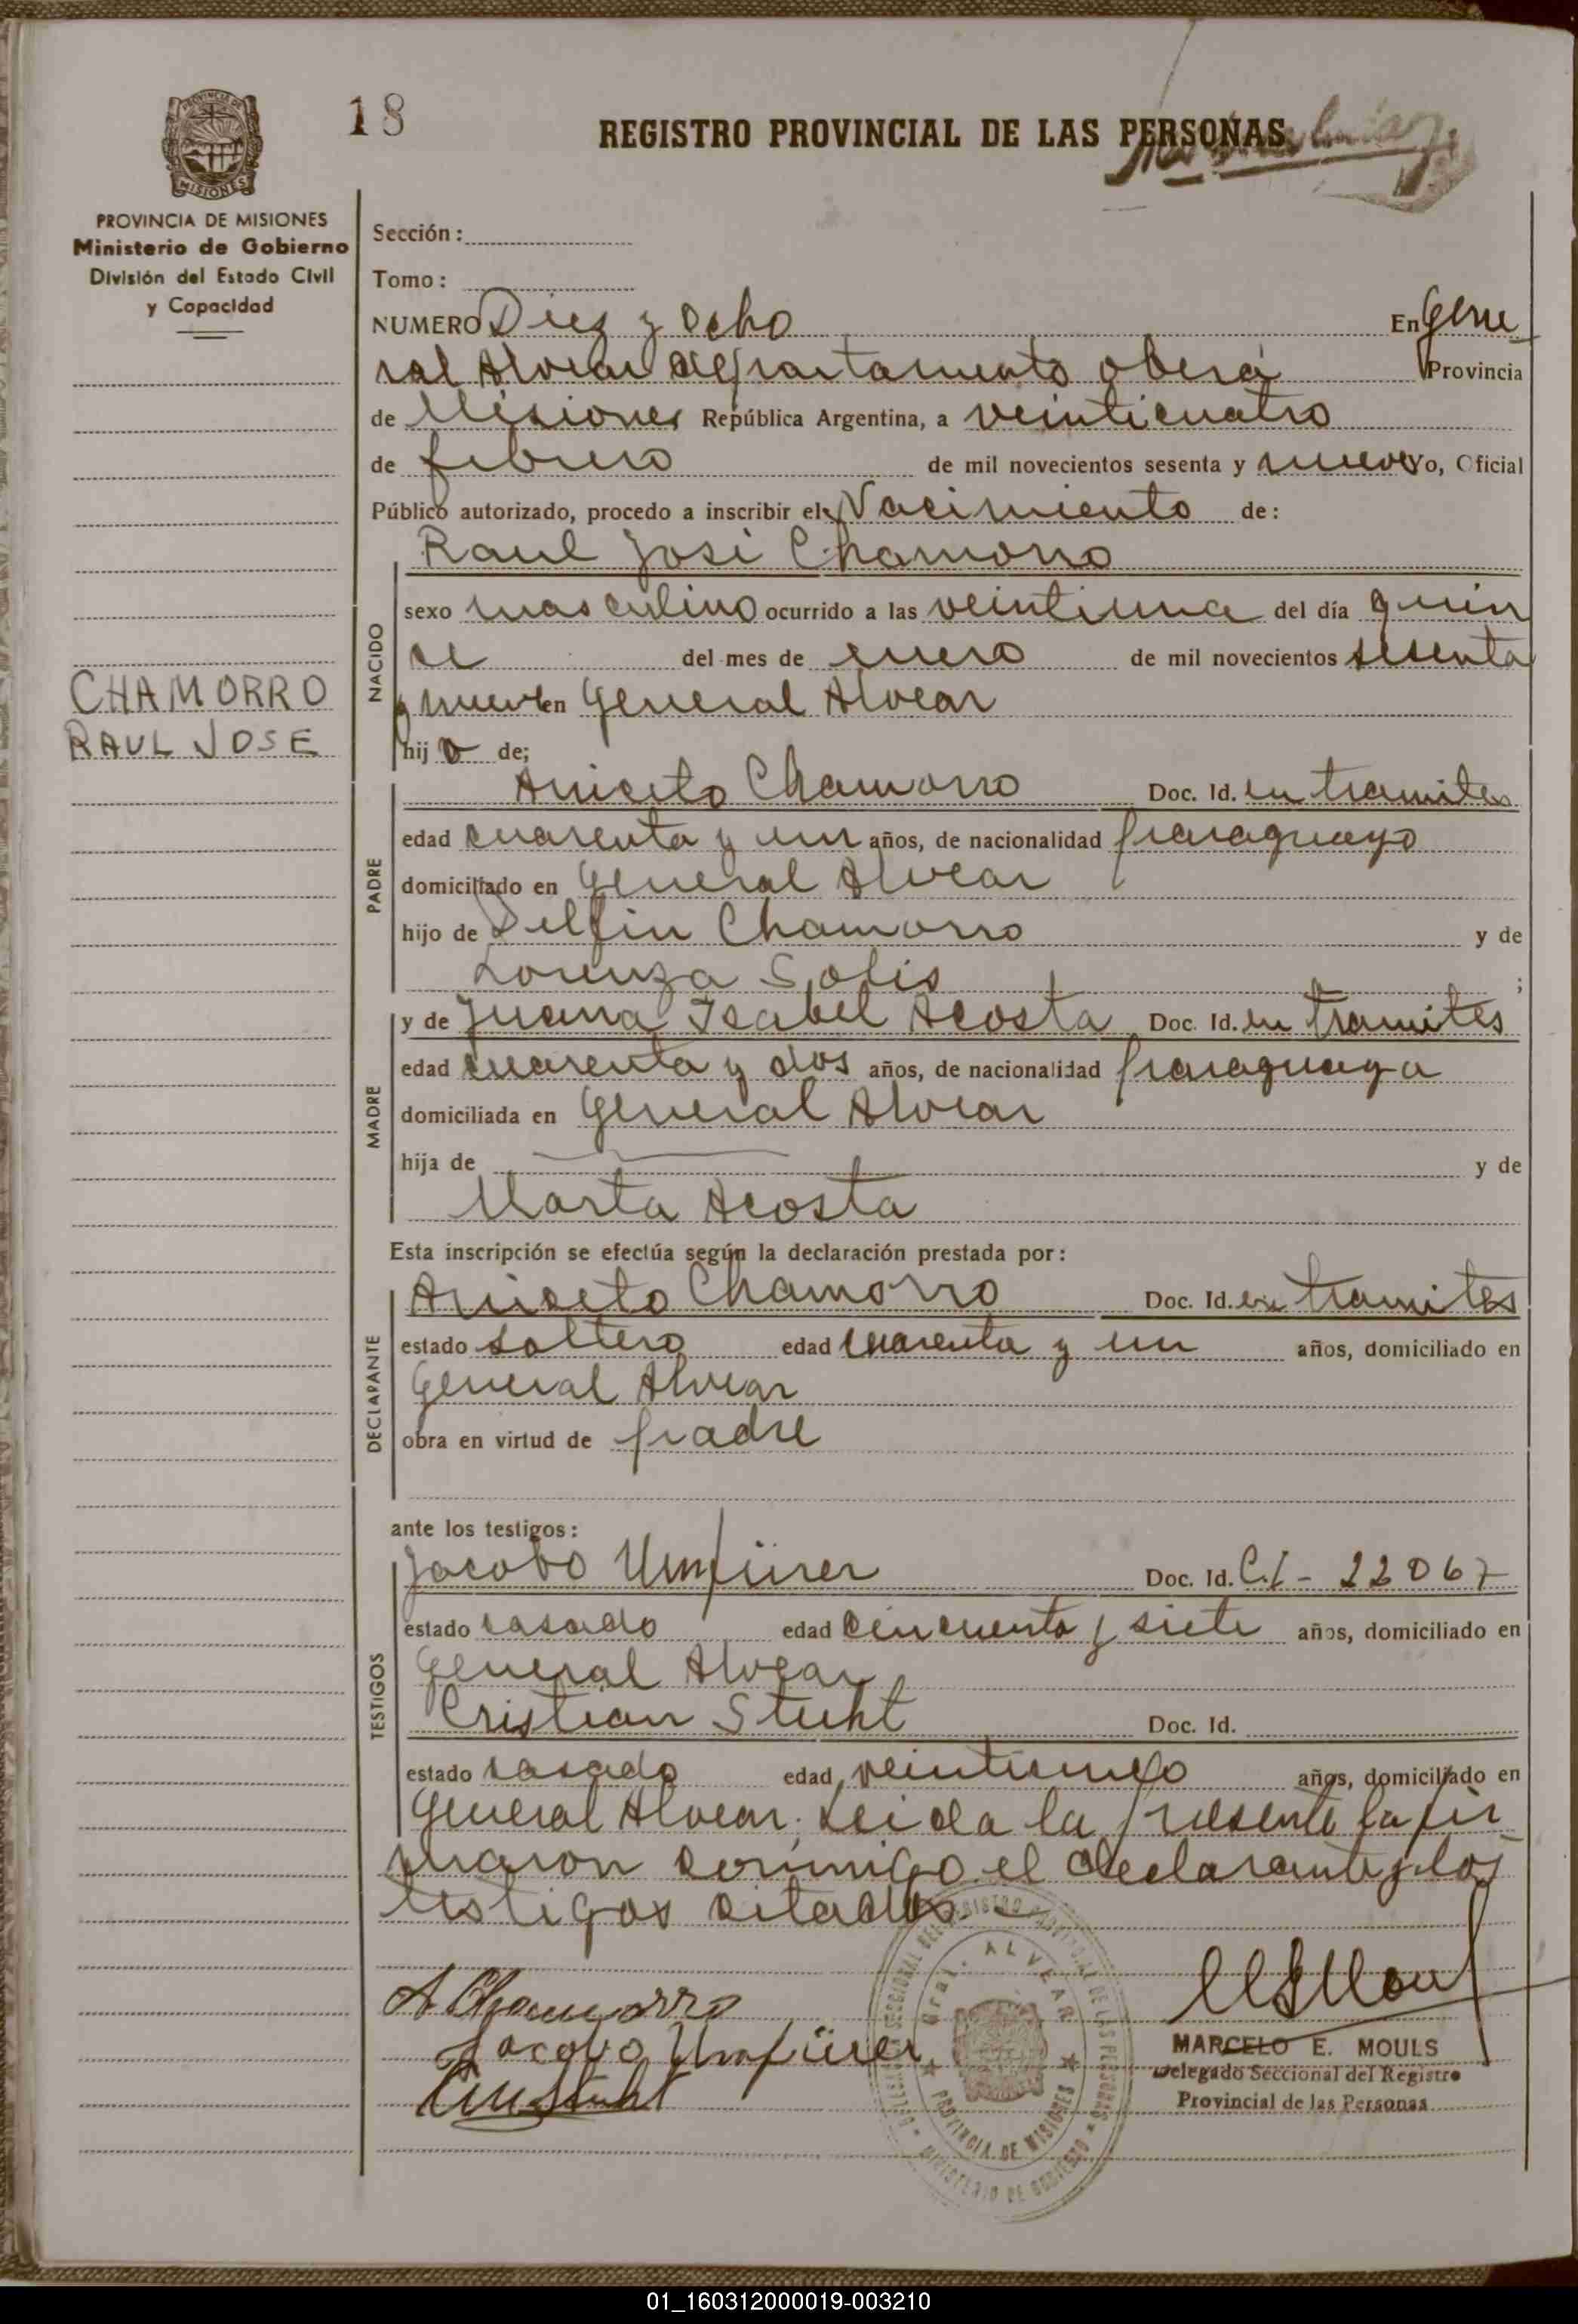 18
REGISTRO PROVINCIAL DE LAS PERSONAS
PROVINCIA DE MISIONES
Ministerio de Gobierno
División del Estado Civil
y Capacidad
Sección :
Tomo :
NUMERO Diez y Ocho En Gene
ral Alvear departamento oberá Provincia
de Misiones República Argentina, a veinticuatro
de febrero de mil novecientos sesenta y nueve yo, Oficial
Público autorizado, procedo a inscribir el Nacimiento de :
Raul José Chamorro
NACIDO
sexo masculino ocurrido a las veintiuna del día quin
ce del mes de enero de mil novecientos sesenta
CHAMORRO
RAUL JOSE
y nueve en General Alvear
hij o de;
PADRE
Aniceto Chamorro Doc. Id. en tramites
edad cuarenta y un años, de nacionalidad paraguayo
domiciliado en General Alvear
hijo de Delfin Chamorro y de
Lorenza Solis ;
MADRE
y de Juana Isabel Acosta Doc. Id. en tramites
edad cuarenta y dos años, de nacionalidad paraguaya
domiciliada en General Alvear
hija de y de
Marta Acosta
Esta inscripción se efectúa según la declaración prestada por :
DECLARANTE
Aniceto Chamorro Doc. Id. en tramites
estado soltero edad cuarenta y un años, domiciliado en
General Alvear
obra en virtud de padre
ante los testigos :
TESTIGOS
Jacobo Umfürer Doc. Id. C.I - 22067
estado casado edad cincuenta y siete años, domiciliado en
General Alvear
Cristian Stuht Doc. Id.
estado casado edad años, domiciliado en
General Alvear; Leida la presente la fir
maron conmigo el declarante y los
testigos citados
A Chamorro
Jacobo Umfürer
MARCELO E. MOULS
Delegado Seccional del Registro
Provincial de las Personas
Gral. ALVEAR
PROVINCIA DE MISIONES
MINISTERIO DE GOBIERNO
01_160312000019-003210